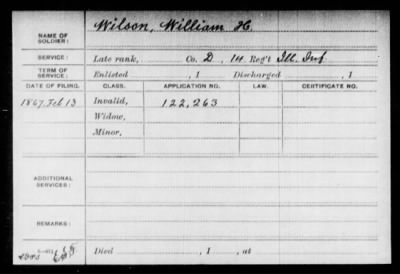 NAME OF SOLDIER: Wilson, William H.
SERVICE: Late rank, Co. D, 14 Reg't Ill. Inf.
TERM OF SERVICE: Enlisted , 1 Discharged , 1
DATE OF FILING. CLASS. APPLICATION NO. LAW. CERTIFICATE NO.
1867 Feb 13 Invalid, 122,263
Widow,
Minor,
ADDITIONAL SERVICES:
REMARKS:
Died , 1 , at